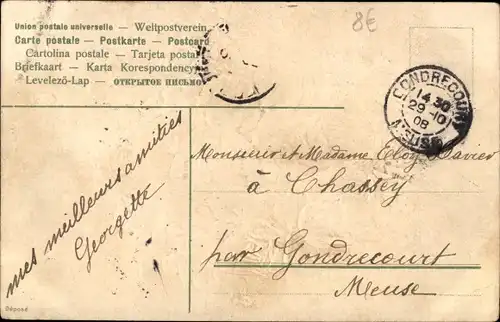 Union postale universelle — Weltpostverein
Carte postale — Postkarte — Postcard
Cartolina postale — Tarjeta postal
Briefkaart — Karta Korespondency
Levelező-Lap — ОТКРЫТОЕ ПИСЬМО
8€
GONDRECOURT
14 30
29 - 10
08
MEUSE
Monsieur et Madame Eloy
à Chassey
par Gondrecourt
Meuse
mes meilleurs amitiés
Georgette
Déposé